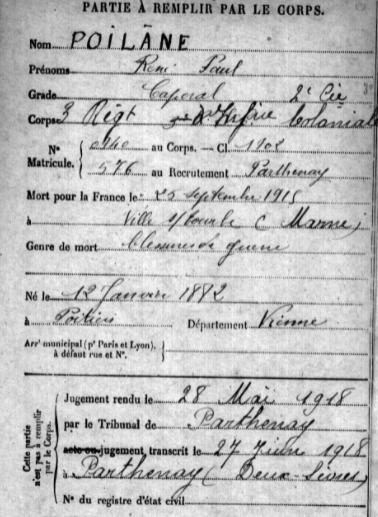 PARTIE À REMPLIR PAR LE CORPS.
Nom POILÂNE
Prénoms René Paul
Grade Caporal 2e Cie
Corps 3 Régt d'Inf rie Colonial
No Matricule. 0940 au Corps. — Cl. 1902
576 au Recrutement Parthenay
Mort pour la France le 25 septembre 1915
à Ville s/ Tourbe (Marne)
Genre de mort blessures de guerre
Né le 12 Janvier 1882
à Poitiers Département Vienne
Arrt municipal (pr Paris et Lyon),
à défaut rue et No.
Cette partie n'est pas à remplir par le Corps.
Jugement rendu le 28 Mai 1918
par le Tribunal de Parthenay
acte ou jugement transcrit le 27 Juin 1918
à Parthenay (Deux-Sèvres)
No du registre d'état civil